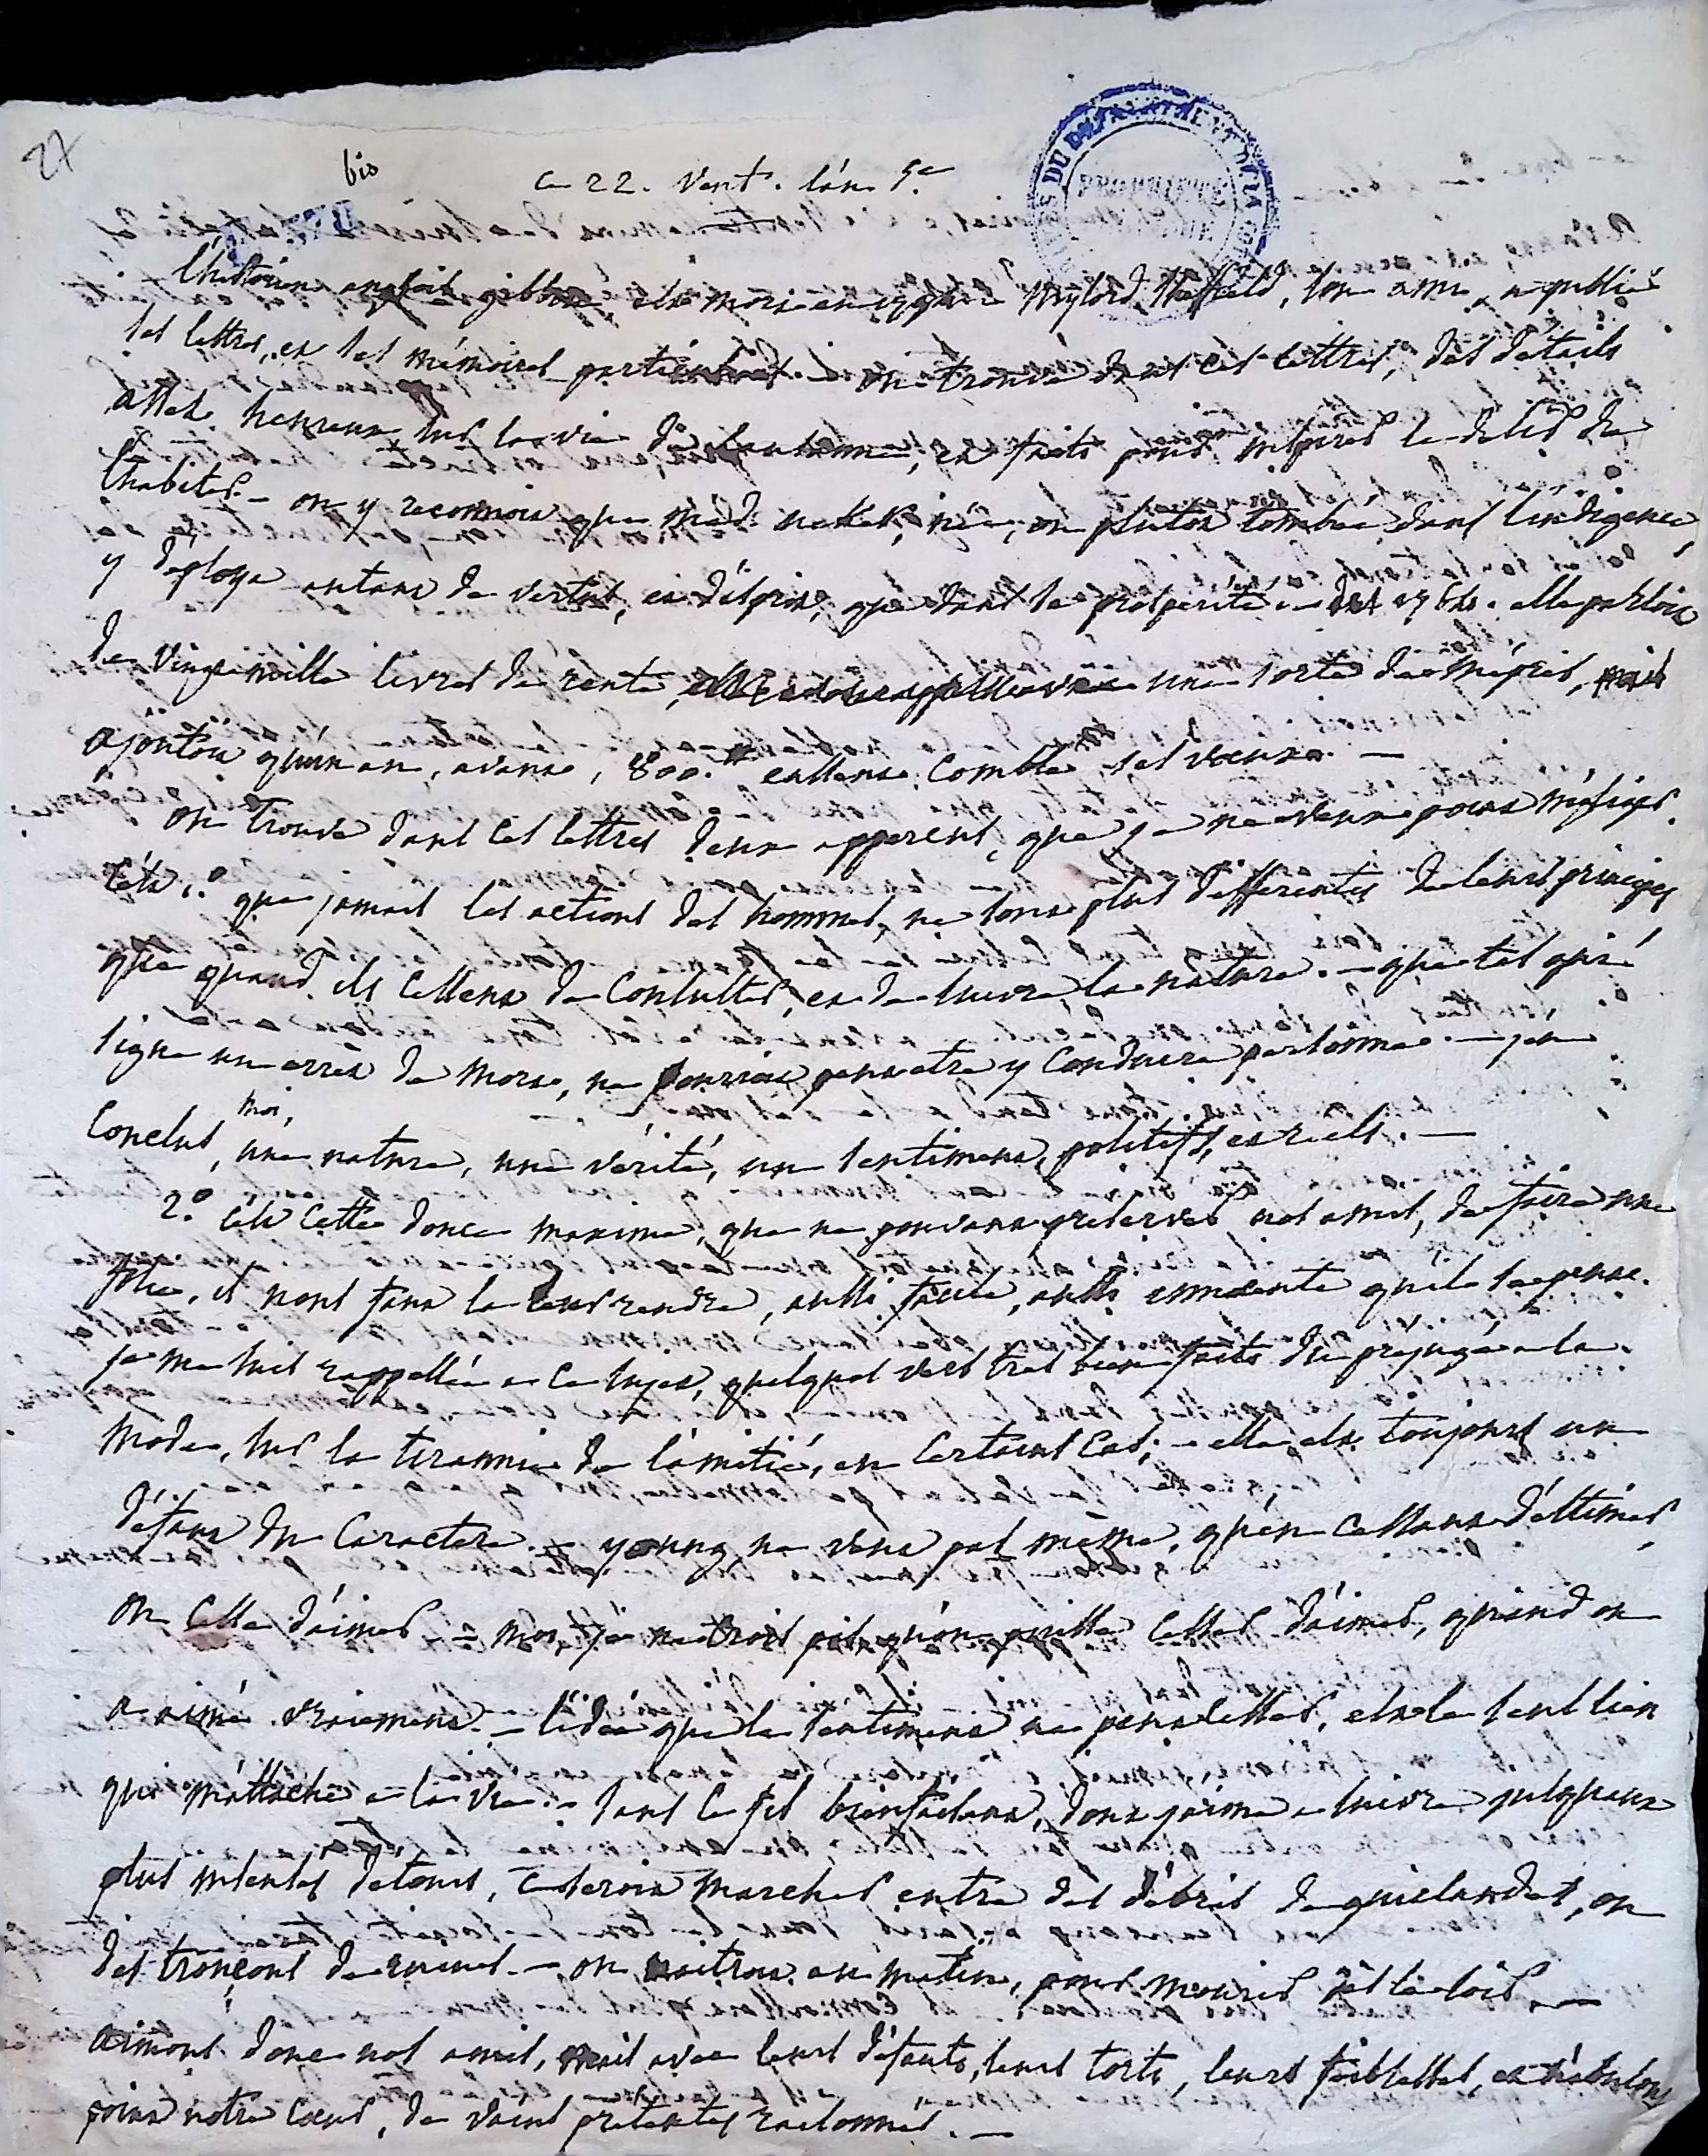 27
bis
ce 22. Vent.e l'an 5.e
DU DEPARTEMENT DE LA
PROPRIETE
l'historien anglois gibbon, est mort en Mylord Sheffield, son ami, a publié
ses lettres, et ses mémoires particuliers. on trouve dans ces lettres, des détails
assez heureux sur la vie de Lausanne, et faits pour inspirer le desir de
l'habiter. – on y reconnoit que mad. necker, née, ou plutot tombée dans l'indigence,
y déploya autant de vertus, et d'esprit, que dans la prosperité. elle parloit
de vingt mille livres de rente, une sorte de mépris, mais
ajoutoit qu'un an, avant, 800.# eussent comblé ses vœux. —
on trouve dans ces lettres deux que je ne veux point négliger.
c'est 1.o que jamais les actions des hommes, ne sont plus differentes de leurs principes
que quand ils cessent de consulter, et de suivre la nature. – que tel qui a
signé un arrèt de mort, ne pourroit peut etre y conduire personne. – j'en
conclus, moi, une nature, une vérité, un sentiment, positifs, et réels. —
2.o c'est cette douce maxime, que ne pouvant preserver nos amis, de faire une
folie, il nous faut la leur rendre, aussi facile, aussi qu'il se peut.
je me suis rappellée a ce sujet, quelques vers tres bien faits du préjugé a la
mode, sur la tirannie de l'amitié, en certains cas; – elle est toujours un
défaut du caractere. – young ne veut pas même, qu'en cessant d'estimer,
on cesse d'aimer – moi, je ne crois pas qu'on puisse cesser d'aimer, quand on
a aimé vraiment. – l'idée que le sentiment ne peut cesser, est le seul lien
qui m'attache a la vie. – sans ce fil bienfaisant, dont j'aime a suivre jusqu'aux
plus detours, ce seroit marcher entre des débris de guirlandes, ou
des tronçons de ruines. – on naitroit au matin, pour mourir dès le soir. —
aimons donc nos amis, mais avec leurs défauts, leurs torts, leurs foiblesses, et n'abusons
point notre cœur, de vains pretextes raisonnés. —